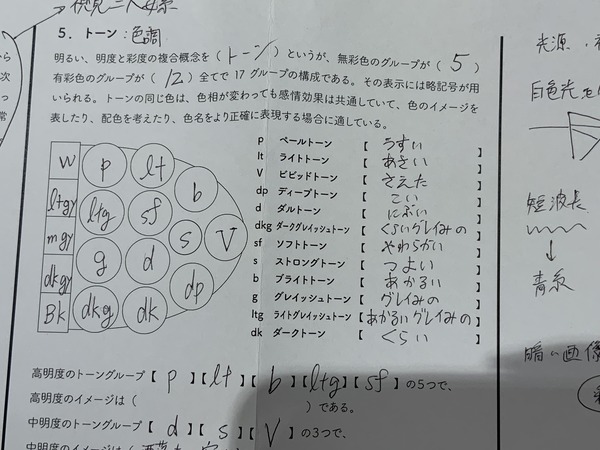 5. トーン:色調
明るい、明度と彩度の複合概念を(トーン)というが、無彩色のグループが(5)
有彩色のグループが(12)全てで17グループの構成である。その表示には略記号が用
いられる。トーンの同じ色は、色相が変わっても感情効果は共通していて、色のイメージを
表したり、配色を考えたり、色名をより正確に表現する場合に適している。
W
ltgy
mgy
dkgy
Bk
p
lt
b
ltg
sf
s
V
g
d
dp
dkg
dk
p ペールトーン 【うすい】
lt ライトトーン 【あさい】
V ビビッドトーン 【さえた】
dp ディープトーン 【こい】
d ダルトーン 【にぶい】
dkg ダークグレイッシュトーン 【くらいグレイみの】
sf ソフトトーン 【やわらかい】
s ストロングトーン 【つよい】
b ブライトトーン 【あかるい】
g グレイッシュトーン 【グレイみの】
ltg ライトグレイッシュトーン 【あかるいグレイみの】
dk ダークトーン 【くらい】
高明度のトーングループ【p】【lt】【b】【ltg】【sf】の5つで、
高明度のイメージは( )である。
中明度のトーングループ【d】【s】【V】の3つで、
中明度のイメージは(
から
次
っ
常
光源・
白色光を
短波長
↓
青系
暗い画像